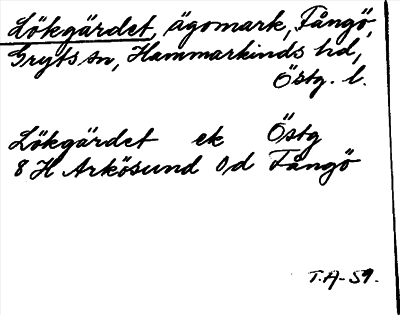 Lökgärdet, ägomark, Fångö,
Gryts sn, Hammarkinds hd,
Östg. l.
Lökgärdet ek Östg
8 H Arkösund Od Fångö
T.A-59.